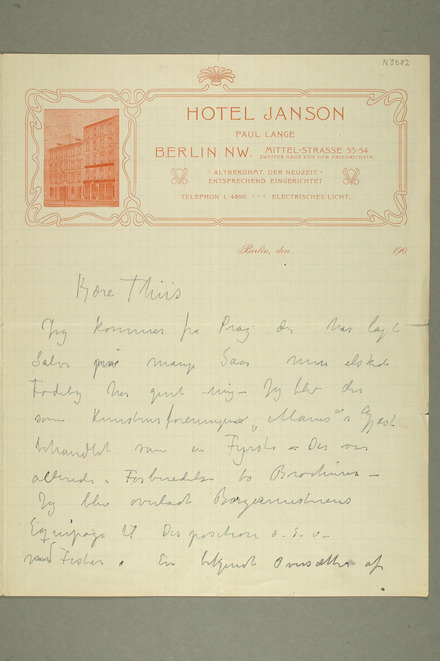 N3082
HOTEL JANSON
PAUL LANGE
BERLIN NW. MITTEL-STRASSE 53-54
ZWEITES HAUS VON DER FRIEDRICHSTR.
ALTBERÜHMT, DER NEUZEIT
ENTSPRECHEND EINGERICHTET
TELEPHON I, 4460 ELECTRISCHES LICHT.
Berlin, den 190
Kære Thiis
Jeg kommer fra Prag der har lagt
Salve på mange Saar min elskede
Fødeby har givet mig – Jeg blev der
som Kunstnerforeningen „Manes"s Gjest
behandlet som en Fyrste – Der var
allerede i Forberedelse to Brochurer –
Jeg blev overladt Borgermesterens
Equipage til Disposition o. s. v.
Fester. En betydelig Oversætter af